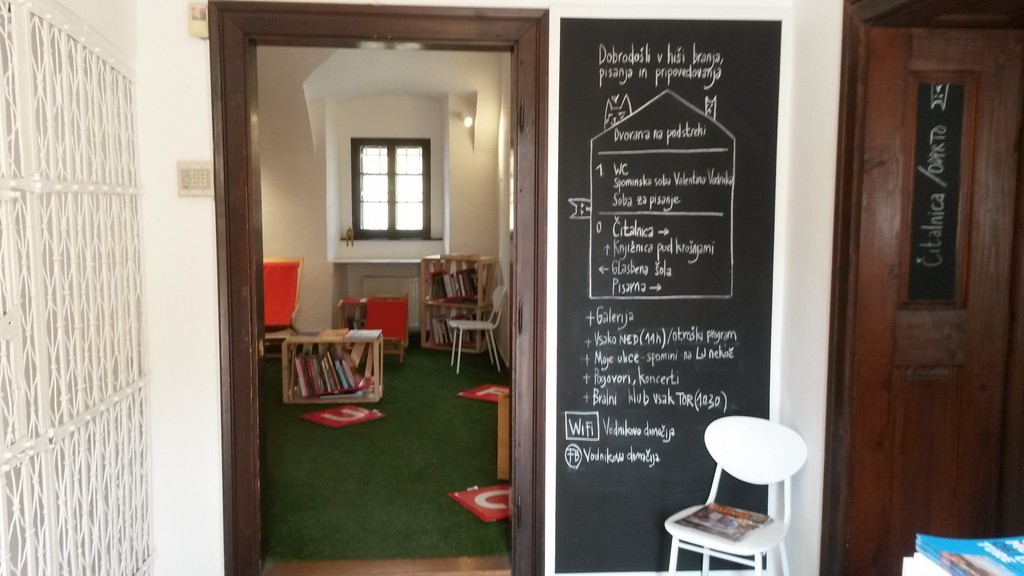 Dobrodošli v hiši branja,
pisanja in pripovedovanja
Dvorana na podstrehi
1 WC
Spominska soba Valentina Vodnika
Soba za pisanje
0 Čitalnica →
↑ Knjižnica pod krošnjami
← Glasbena šola
Pisarna →
+ Galerija
+ Vsako NED (11h) / otroški program
+ Moje ulice - spomini na LJ nekoč
+ Pogovori, koncerti
+ Bralni klub vsak TOR (1030)
WiFi Vodnikova domačija
FB Vodnikova domačija
Čitalnica / ODPRTO